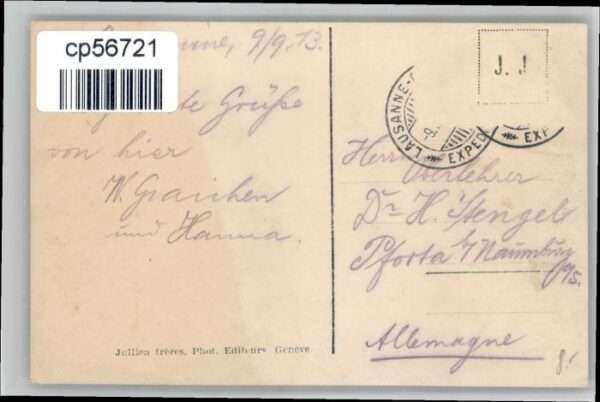 cp56721
9/9.13.
Grüße
von hier
W. Graichen
und Hanna.
Jullien frères, Phot. Editeurs Genève
J. J
LAUSANNE
EXPED
EXP
Herrn
Oberlehrer
Dr H. Stengel
Pforta b/ Naumburg
a/S.
Allemagne